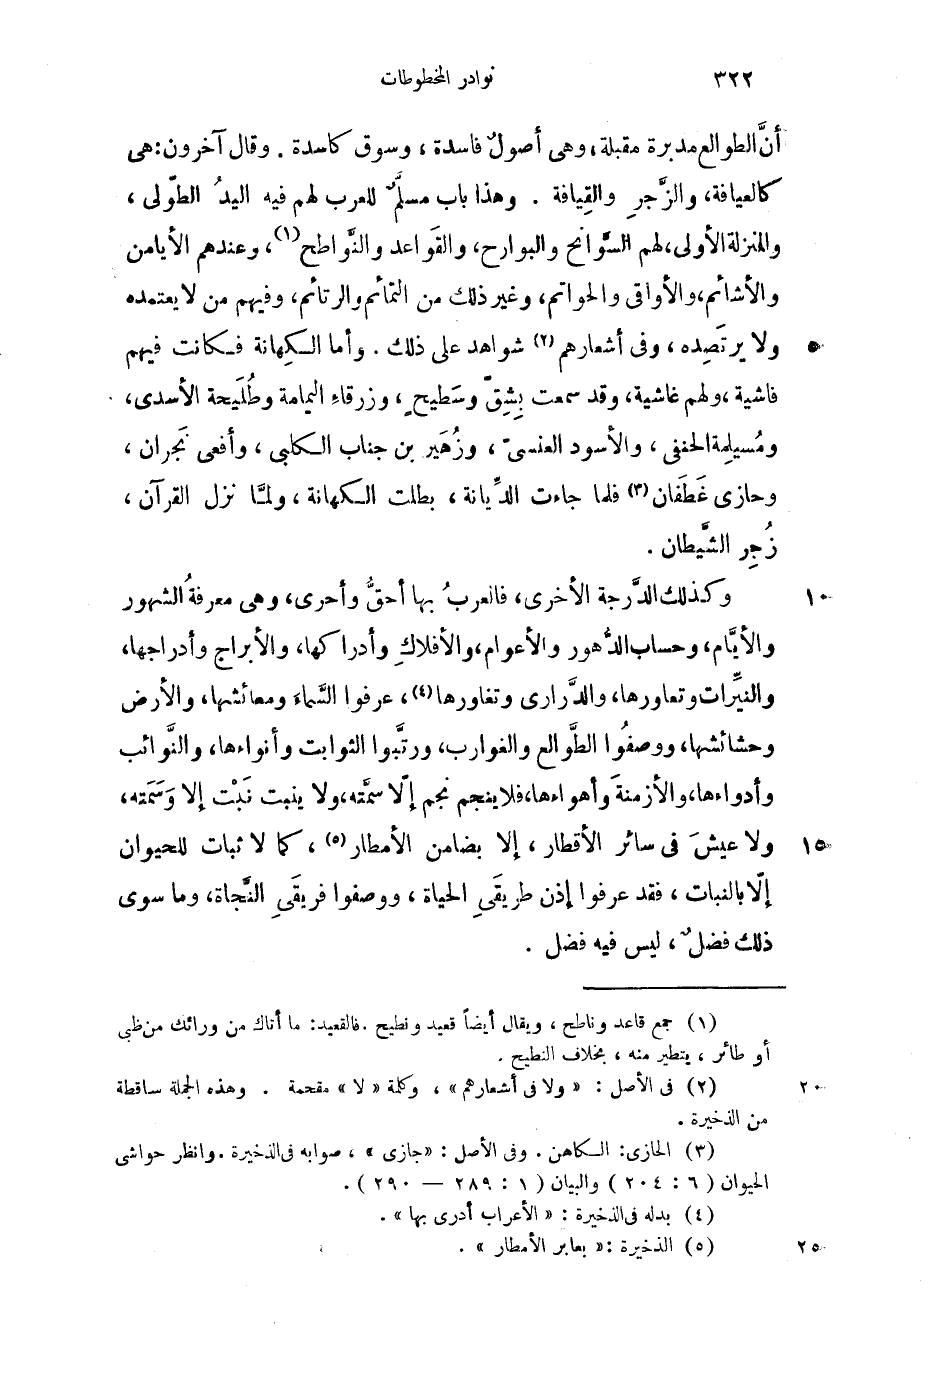 ٣٢٢ نوادر المخطوطات
أنَّ الطوالع مدبرة مقبلة، وهى أصولٌ فاسدة ، وسوق كاسدة . وقال آخرون: هى
كالعيافة، والزَّجرِ والقِيافة . وهذا باب مسلَّمٌ للعرب لهم فيه اليدُ الطّولى ،
والمنزلة الأولى، لهم السَّوانح والبوارح، والقَواعد والنَّواطح(١)، وعندهم الأيامن
والأشائم، والأواقى والحواتم، وغير ذلك من التمائم والرتائم، وفيهم من لا يعتمده
٥ ولا يرتَصِده ، وفى أشعارهم(٢) شواهد على ذلك . وأما الكِهانة فكانت فيهم
فاشية ، ولهم غاشية، وقد سمعت بِشِقّ وسَطيحٍ ، وزرقاءِ اليمامة وطُلَيحة الأسدى،
ومُسيلِمة الحنفى ، والأسود العنسىّ ، وزُهَير بن جناب الكلبى ، وأفعى نَجران ،
وحازى غَطَفان(٣) فلما جاءت الدِّيانة ، بطلت الكهانة ، ولمَّا نزل القرآن ،
زُجِر الشَّيطان .
١٠ وكذلك الدَّرجة الأخرى، فالعربُ بها أحقُّ وأحرى، وهى معرفةُ الشهور
والأيَّام، وحساب الدُّهور والأعوام، والأفلاكِ وأدراكها، والأبراج وأدراجها،
والنيِّرات وتعاورها، والدَّرارى وتغاورها(٤)، عرفوا السَّماءَ ومعائشها، والأرض
وحشائشها، ووصفُوا الطَّوالع والغوارب، ورتَّبوا الثوابت وأنواءها، والنَّوائب
وأدواءها، والأزمنةَ وأهواءها، فلا ينجم نجم إلّا سمَّته، ولا ينبت نَبْت إلا وَسَمَته،
١٥ ولا عيشَ فى سائر الأقطار ، إلا بضامن الأمطار(٥) ، كما لا ثبات للحيوان
إلّا بالنبات ، فقد عرفوا إذن طريقَىِ الحياة ، ووصفوا فريقَىِ النَّجاة، وما سوى
ذلك فضلٌ ، ليس فيه فضل .
(١) جمع قاعد وناطح ، ويقال أيضاً قعيد ونطيح . فالقعيد: ما أتاك من ورائك من ظبى
أو طائر ، يتطير منه ، بخلاف النطيح .
٢٠ (٢) فى الأصل : « ولا فى أشعارهم » ، وكلمة « لا » مقحمة . وهذه الجملة ساقطة
من الذخيرة .
(٣) الحازى: الكاهن . وفى الأصل : «جازى » ، صوابه فى الذخيرة . وانظر حواشى
الحيوان ( ٦ : ٢٠٤ ) والبيان ( ١ : ٢٨٩ — ٢٩٠ ) .
(٤) بدله فى الذخيرة : « الأعراب أدرى بها » .
٢٥ (٥) الذخيرة : « بعابر الأمطار » .